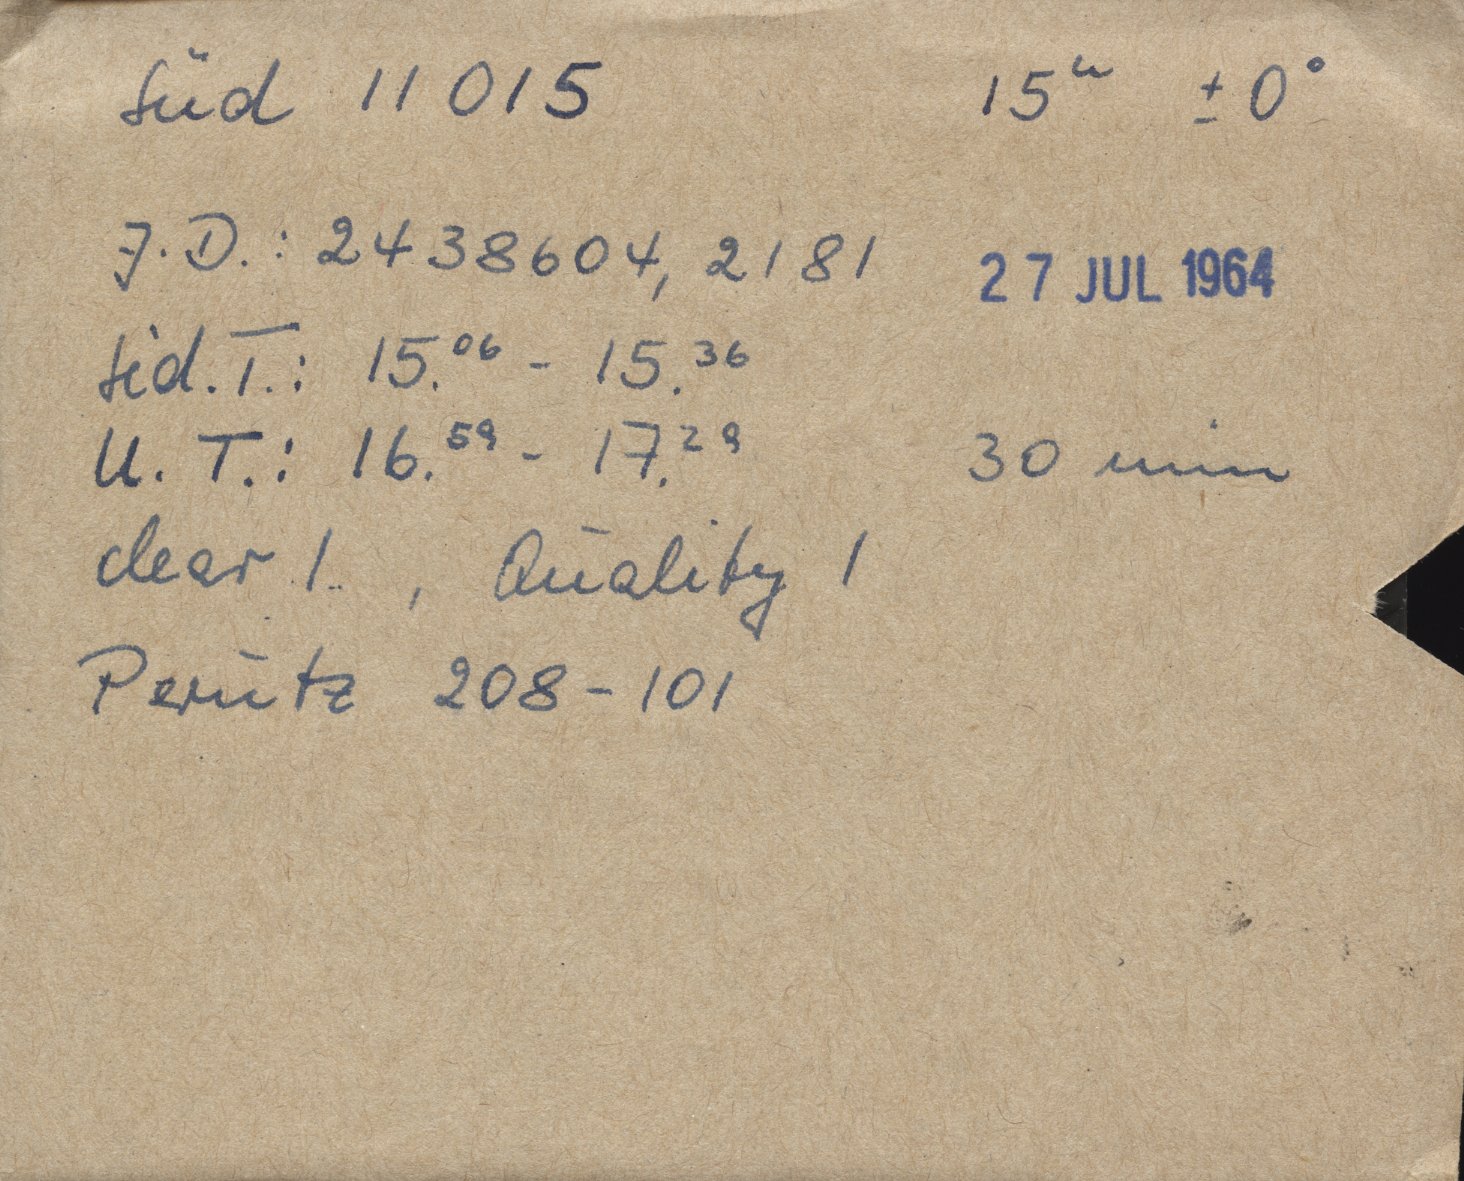 Süd 11015 15ʰ ±0°
J.D.: 2438604,2181 27 JUL 1964
Sid.T.: 15.⁰⁶ - 15.³⁶
U.T.: 16.⁵⁹ - 17.²⁹ 30 min
clear 1. , Quality 1
Perutz 208-101